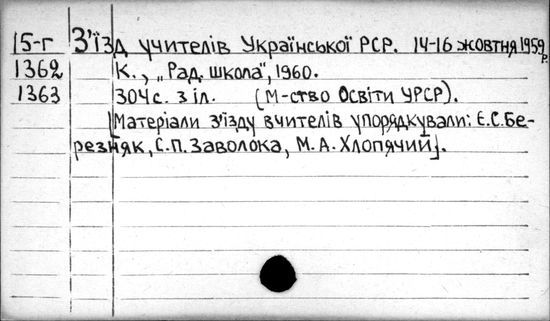 15-г З'їзд учителів Української РСР. 14-16 жовтня 1959 р.
1362 К., „Рад. школа", 1960.
1363 304 с. з іл. (М-ство Освіти УРСР).
[Матеріали з'їзду вчителів упорядкували: Є.С.Бе-
резняк, С.П.Заволока, М.А.Хлопячий].